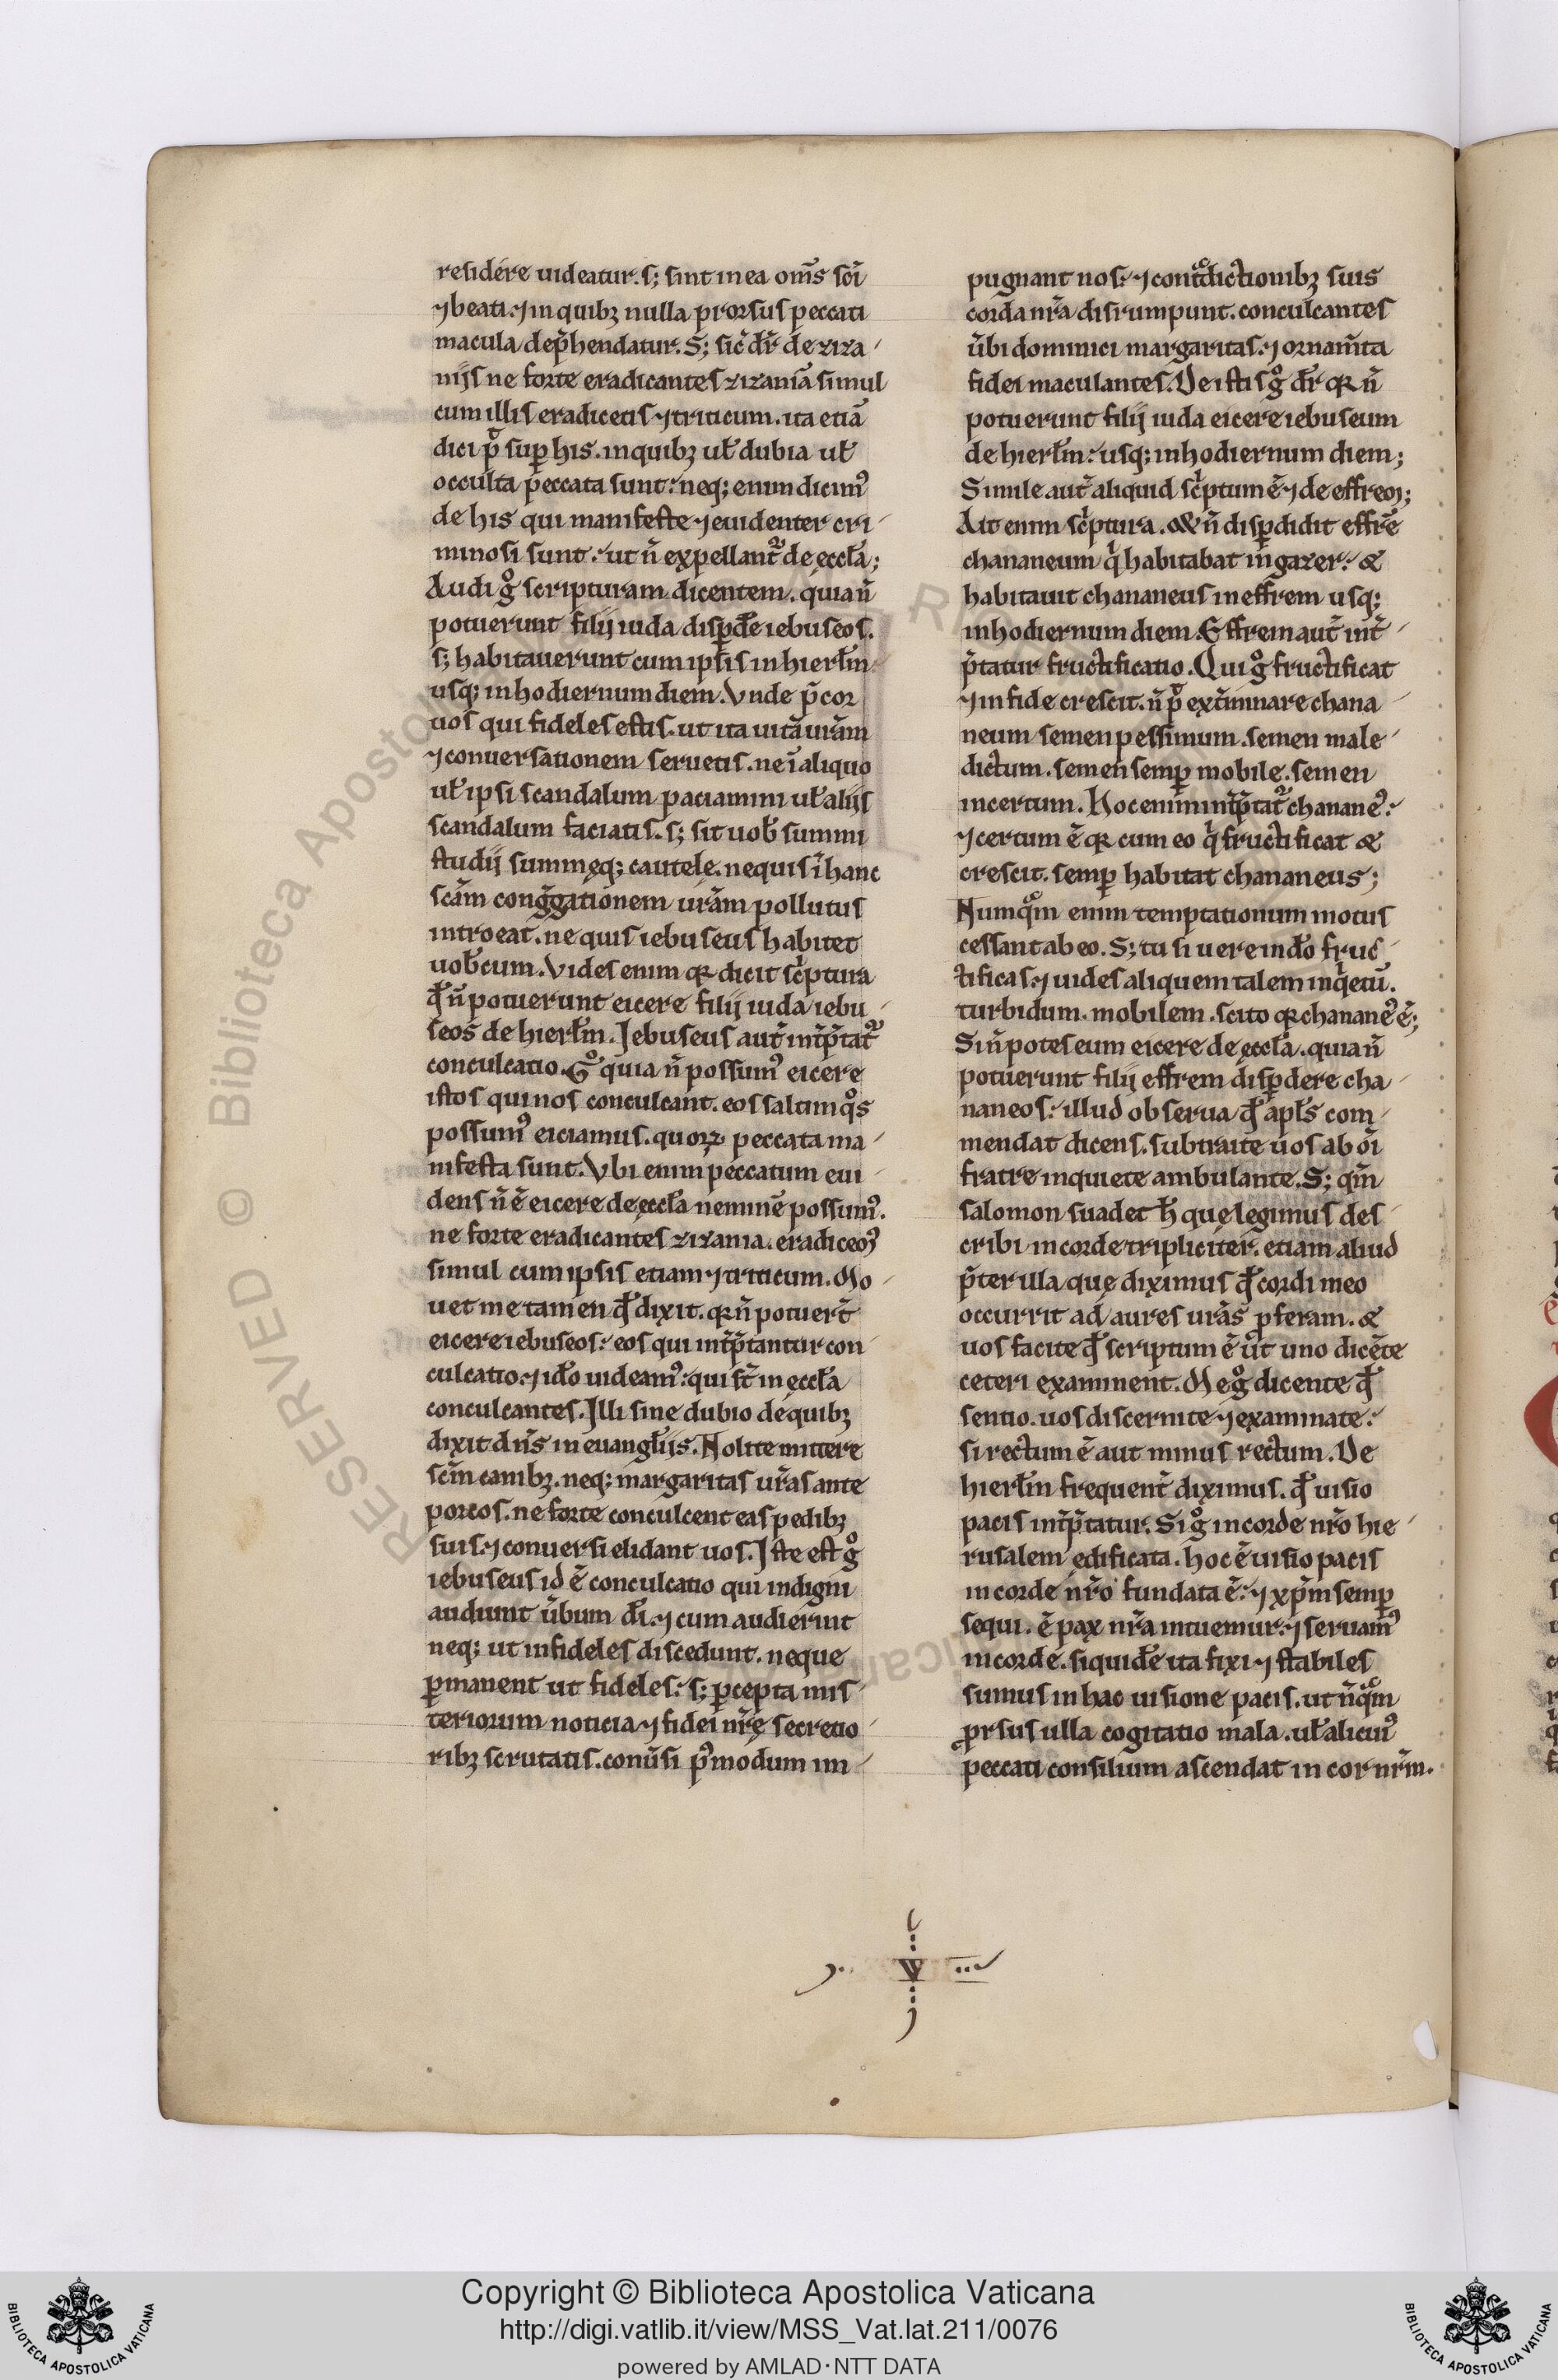 residere uideatur. s; sint in ea om̅s sc̅i
⁊ beati. ⁊ in quibꝫ nulla prorsus peccati
macula dep̅hendatur. S; sic̅ dr̅ de ziza-
nijs ne forte eradicantes zizania̅ simul
cum illis eradicetis ⁊ triticum. ita etia̅
dici pͭ suꝑ his. in quibꝫ ul̅ dubia ul̅
occulta peccata sunt: neq; enim dicim᾿
de his qui manifeste ⁊ euidenter cri-
minosi sunt: ut n̅ expellant᷑ de eccl̅a;
Audi gͦ scripturam dicentem. quia n̅
potuerunt filij iuda disꝑde̅ iebuseos.
s; habitauerunt cum ipsis in hierl̅m
usq; in hodiernum diem. Vnde p̅cor
uos qui fideles estis. ut ita uita̅ ur̅am
⁊ conuersationem seruetis. ne i̅ aliquo
ul̅ ipsi scandalum paciamini ul̅ alijs
scandalum faciatis. s; sit uob̅ summi
studij summęq; cautele. nequis i̅ hanc
sc̅am cong̅gationem ur̅am pollutus
introeat. ne quis iebuseus habitet
uob̅cum. Vides enim qꝛ dicit sc͛ptura
qd̅ n̅ potuerunt eicere filij iuda iebu-
seos de hierl̅m. Iebuseus aut̅ int̅p̅tat᷑
conculcatio. Gͦ quia n̅ possum᾿ eicere
istos qui nos conculcant. eos saltim qͦs
possum᾿ eiciamus. quoꝝ peccata ma-
nifesta sunt. Vbi enim peccatum eui-
dens n̅ e̅ eicere de eccl̅a nemine̅ possum᾿.
ne forte eradicantes zizania. eradicem᾿
simul cum ipsis etiam ⁊ triticum. Mo-
uet me tamen qd̅ dixit. qꝛ n̅ potuer̅t
eicere iebuseos: eos qui int̅p̅tantur con-
culcatio. ⁊ id̅o uideam᾿: qui st̅ in eccl̅a
conculcantes. Illi sine dubio de quibꝫ
dixit dn̅s in euangl̅ijs. Nolite mittere
sc̅m canibꝫ. neq; margaritas ur̅as ante
porcos. ne forte conculcent eas pedibꝫ
suis. ⁊ conuersi elidant uos. Iste est gͦ
iebuseus id e̅ conculcatio qui indigni
audiunt u̅bum di̅. ⁊ cum audierint
neq; ut infideles discedunt. neque
ꝑmanent ut fideles: s; ꝑcepta mis-
teriorum noticia ⁊ fidei nr̅ę secretio-
ribꝫ scrutatis. conu̅si p᾿modum im-
pugnant nos: ⁊ contͦdictionibꝫ suis
corda nr̅a disrumpunt. conculcantes
u̅bi dominici margaritas. ⁊ ornam̅ta
fidei maculantes. De istis gͦ dr̅ qꝛ n̅
potuerunt filij iuda eicere iebuseum
de hierl̅m: usq; in hodiernum diem;
Simile aut̅ aliquid sc͛ptum e̅ ⁊ de effrem;
Ait enim sc͛ptura. Et n̅ disꝑdidit effre̅
chananeum qͥ habitabat in gazer: &
habitauit chananeus in effrem usq;
in hodiernum diem. Effrem aut̅ int̅-
p̅tatur fructificatio. Qui gͦ fructificat
⁊ in fide crescit. n̅ pͭ ext̅minare chana-
neum semen pessimum. semen male-
dictum. semen semꝑ mobile. semen
incertum. Hoc enim int̅p̅tat᷑ chanane᾿:
⁊ certum e̅ qꝛ cum eo qͥ fructificat &
crescit. semꝑ habitat chananeus;
Numqͦm enim temptationum motus
cessant ab eo. S; tu si uere in do̅ fruc-
tificas. ⁊ uides aliquem talem inqͥetu̅.
turbidum. mobilem. scito qꝛ chanane᾿ e̅;
Si n̅ potes eum eicere de eccl̅a. quia n̅
potuerunt filij effrem disꝑdere cha-
naneos: illud obserua qd̅ apl̅s com-
mendat dicens. subtraite uos ab oi̅
fratre inquiete ambulante. S; qm̅
salomon suadet h̅ quę legimus des-
cribi in corde tripliciter. etiam aliud
p̅ter illa quę diximus qd̅ cordi meo
occurrit ad aures ur̅as ꝓferam. &
uos facite qd̅ scriptum e̅ ut uno dice̅te
ceteri examinent. Me gͦ dicente qd̅
sentio. uos discernite ⁊ examinate:
si rectum e̅ aut minus rectum. De
hierl̅m frequent̅ diximus. qd̅ uisio
pacis int̅p̅tatur. Si gͦ in corde nr̅o hie-
rusalem ędificata. hoc e̅ uisio pacis
in corde nr̅o fundata e̅: ⁊ xp̅m semꝑ
sequi. e̅ pax nr̅a intuemur. ⁊ seruam᾿
in corde. siquide̅ ita fixi ⁊ stabiles
sumus in hac uisione pacis. ut n̅qͦm
ꝓrsus ulla cogitatio mala. ul̅ alicui᾿
peccati consilium ascendat in cor nr̅m.
V
RESERVED © Biblioteca Apostolica Vaticana
Copyright © Biblioteca Apostolica Vaticana
http://digi.vatlib.it/view/MSS_Vat.lat.211/0076
powered by AMLAD·NTT DATA
BIBLIOTECA APOSTOLICA VATICANA
BIBLIOTECA APOSTOLICA VATICANA